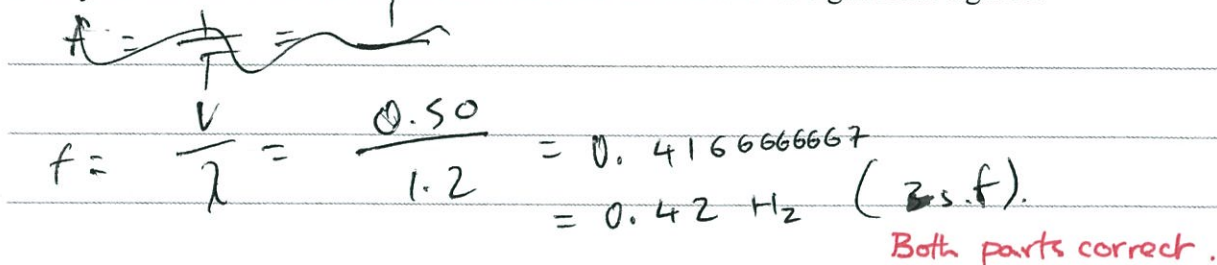 f = 1/T =
f = V/λ = 0.50/1.2 = 0.4166666667
= 0.42 Hz ( s.f).
Both parts correct.